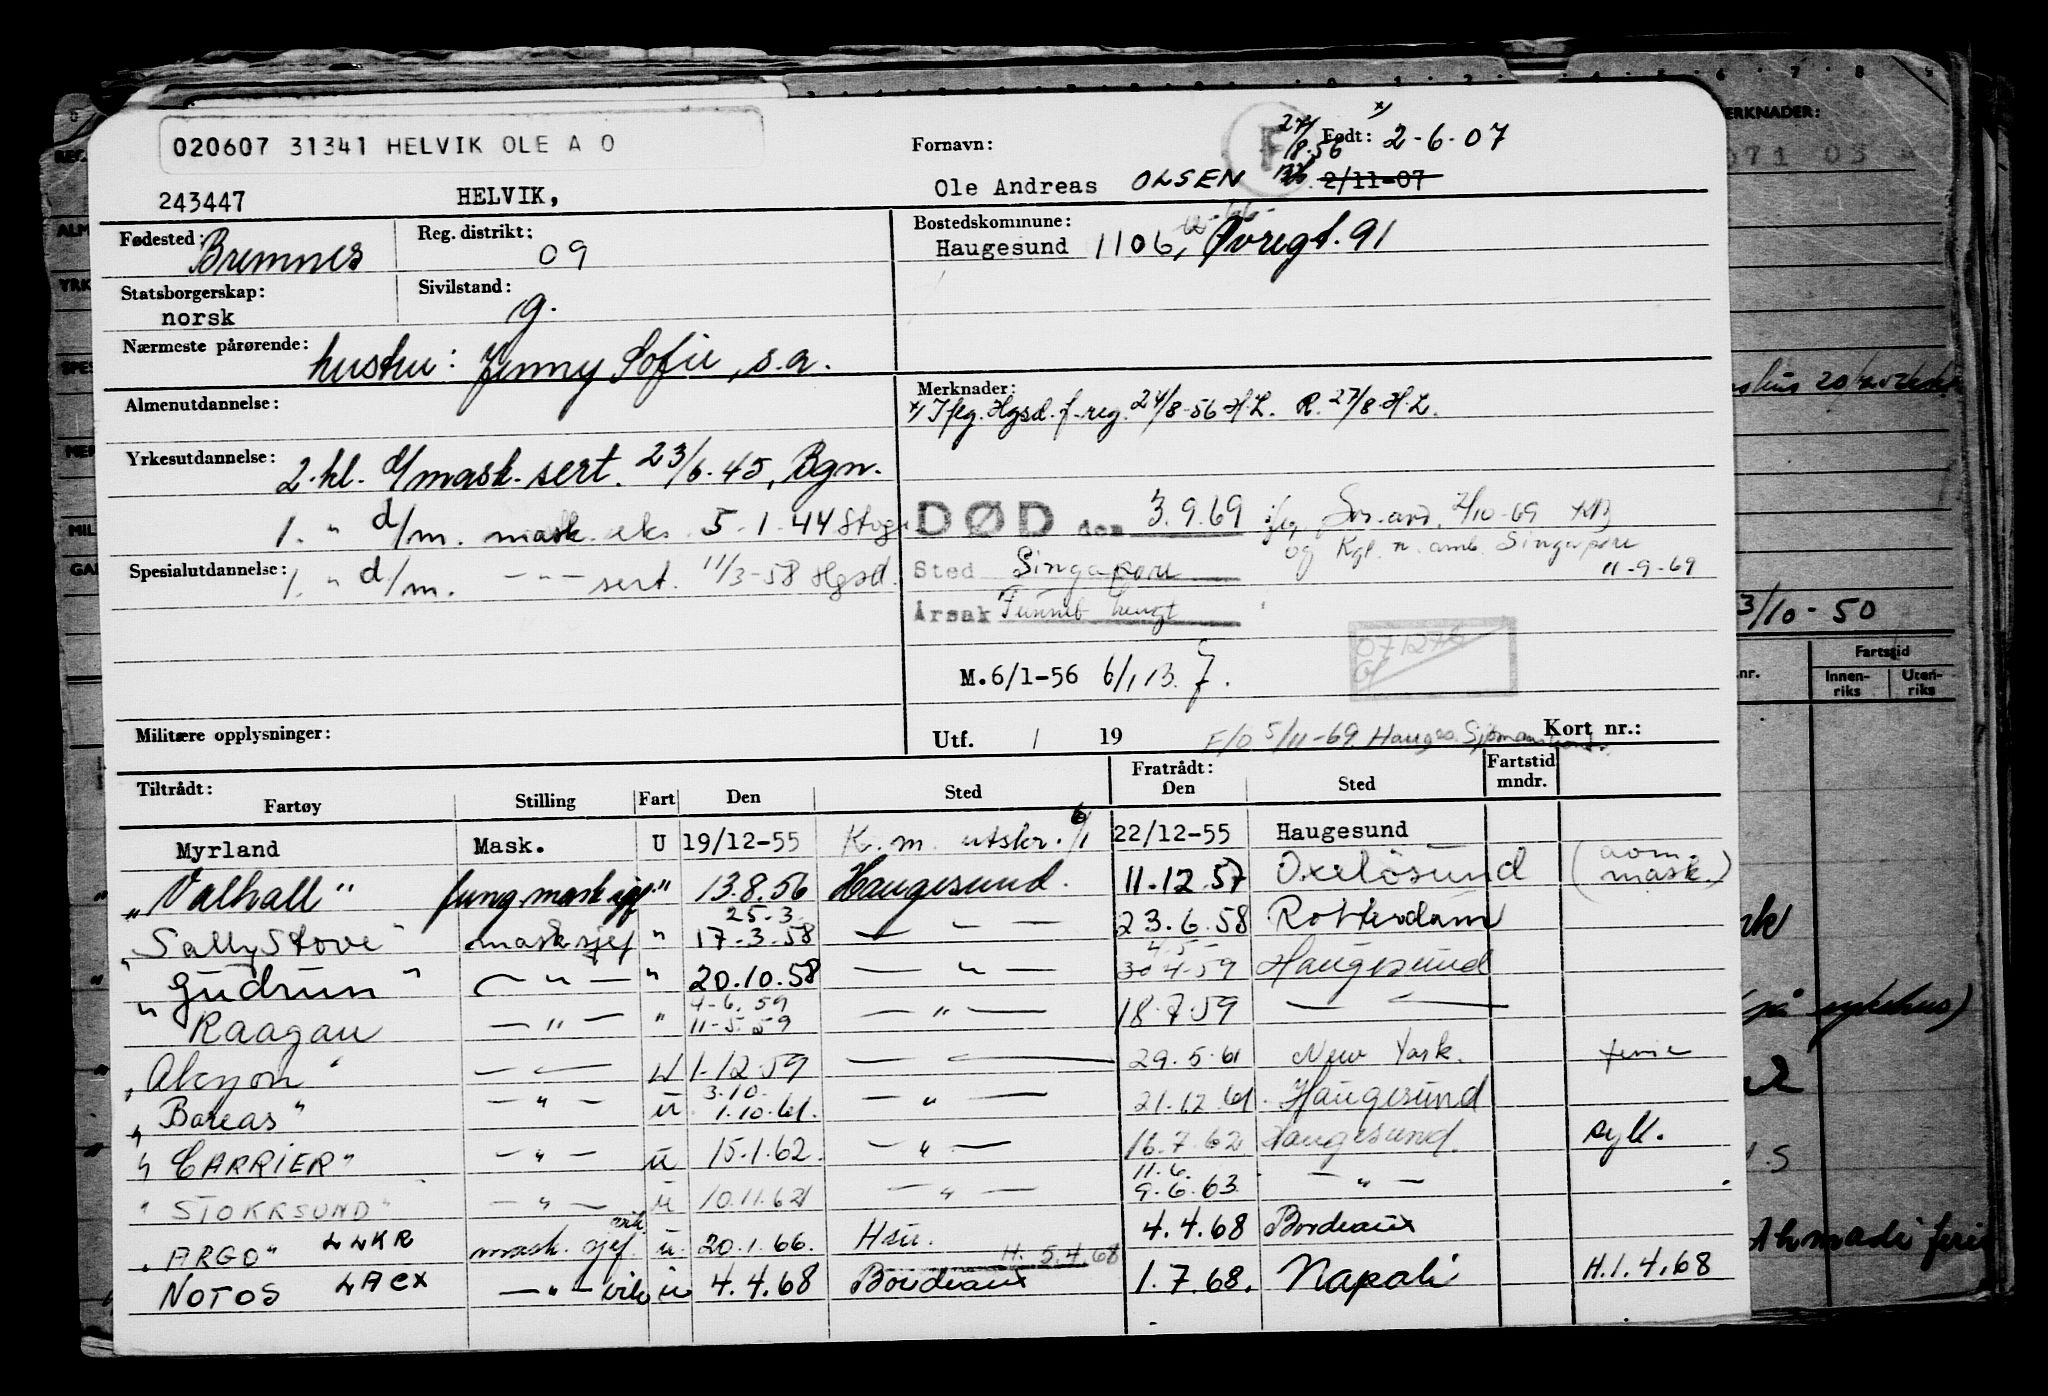 020607 31341 HELVIK OLE A O
243447 HELVIK,
Fornavn: Ole Andreas OLSEN
27/8-56
x) Født: 2-6-07
2/11-07
F
Fødested: Bremnes
Reg. distrikt: 09
Bostedskommune: Haugesund 1106, Øvregt. 91
Statsborgerskap: norsk
Sivilstand: g.
Nærmeste pårørende: hustru: Jenny Sofie, s.a.
Almenutdannelse:
Merknader:
x) Iflg. Hgsd. f-reg. 24/8-56 H.L. R. 27/8 H.L.
Yrkesutdannelse: 2. kl. d/mask. sert. 23/6-45, Bgn.
1. " d/m. mask. eks. 5-1-44
Spesialutdannelse: 1. " d/m. — " — sert. 11/3-58 Hgsd.
DØD den 3.9.69 iflg. 2/10-69
og Kgl. n. amb. Singapore
11-9-69
Sted Singapore
Årsak Funnet hengt
M.6/1-56 6/1 13. 7.
Militære opplysninger:
Utf. / 19
F/O 5/11-69 Hauges. Sjømannskont.
Kort nr.:
Tiltrådt: Fartøy Stilling Fart Den Sted Fratrådt: Den Sted Fartstid mndr.
Myrland Mask. U 19/12-55 K. m. utskr. 6/1 22/12-55 Haugesund
"Valhall" fung. mask.sjef " 13.8.56 Haugesund. 11.12.57 Oxelösund (aom. mask.)
25.3.
"Sally Stove" mask.sjef " 17-3-58 — " — 23.6.58 Rotterdam
4-5-
"Gudrun" — " — " 20.10.58 — " — 30 4-59 Haugesund
4-6.59
"Raagan — " — " 11-5-59 — " — 18.7.59 — " —
"Alcyon" — " — U 1-12-59 — " — 29.5.61 New York. ferie
3.10.
"Boreas" — " — u 1.10.61. — " — 21.12.61. Haugesund
"CARRIER" — " — u 15.1.62. — " — 16.7.62 Haugesund. syk.
11.6.
"STOKKSUND" — " — u 10.11.62 — " — 9.6.63. — " —
"ARGO" LLKR mask. sjef. vik u. 20.1.66. Hsu. 4.4.68 Bordeaux
H. 5.4.68
NOTOS LACX — " — vik u 4.4.68 Bordeaux 1.7.68. Napoli H.1.4.68
MERKNADER:
071 03
3/10-50
Fartstid
nr. Innenriks Utenriks
(på sykehus)
Ahmadi ferie